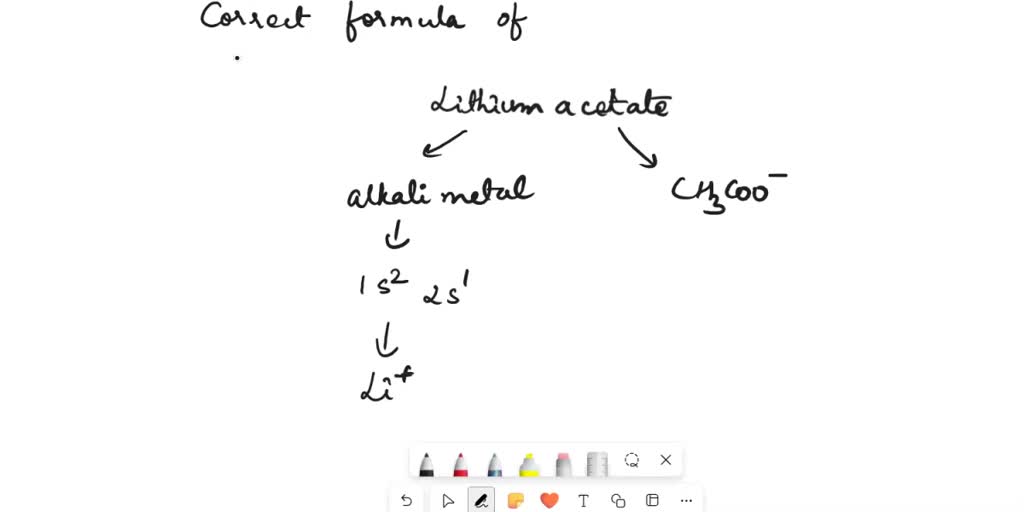 Correct formula of
Lithium acetate
alkali metal
CH₃COO⁻
1s² 2s¹
Li⁺
T